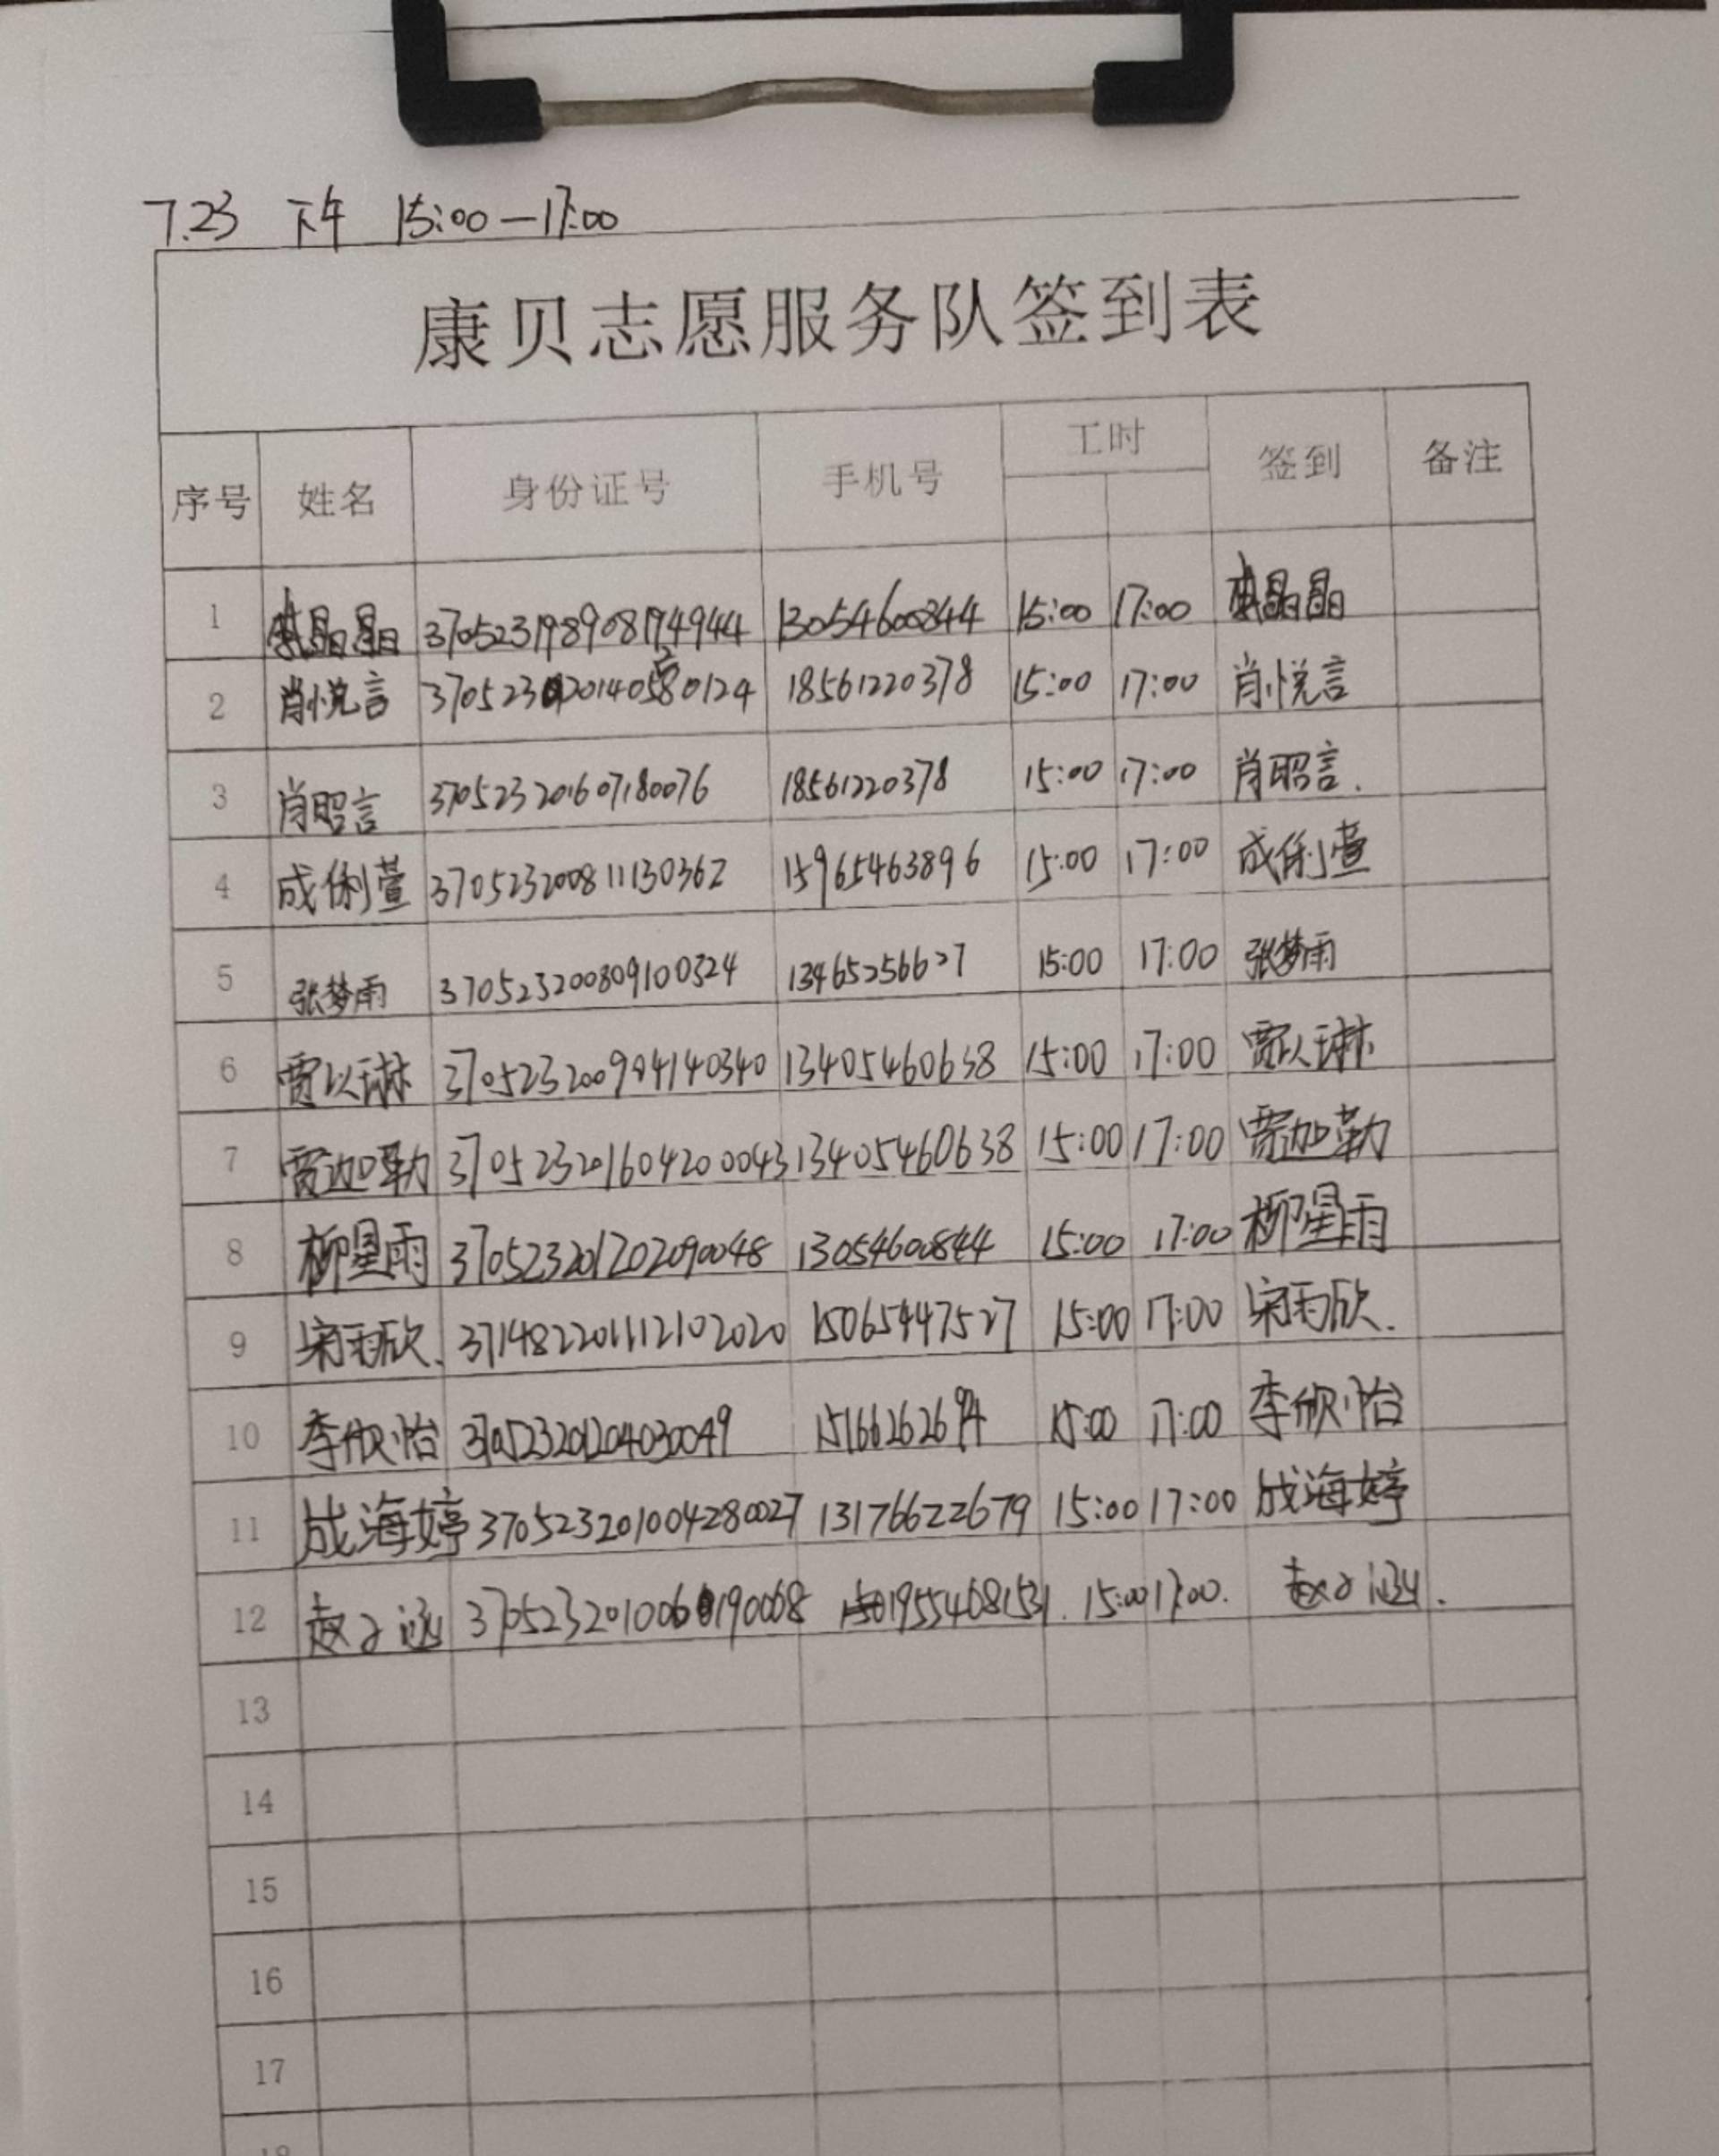 7.23 下午 15:00—17:00
康贝志愿服务队签到表
序号 姓名 身份证号 手机号 工时 签到 备注
1 晶晶 370523198908194944 13054600844 15:00 17:00 晶晶
2 肖悦言 18561220378 15:00 17:00 肖悦言
3 肖昭言 370523201607180076 18561220378 15:00 17:00 肖昭言.
4 成俐萱 370523200811130362 15965463896 15:00 17:00 成俐萱
5 张梦雨 370523200809100324 13465256627 15:00 17:00 张梦雨
6 贾以琳 370523200904140340 13405460638 15:00 17:00 贾以琳
7 贾迦勒 370523201604200043 13405460638 15:00 17:00 贾迦勒
8 柳星雨 370523201202090048 13054600844 15:00 17:00 柳星雨
9 宋雨欣. 371482201112102020 15065447527 15:00 17:00 宋雨欣.
10 李欣怡 370523201204030049 15:00 17:00 李欣怡
11 成海婷 370523201004280027 13176622679 15:00 17:00 成海婷
12 赵子涵 19554681531. 15:00 17:00. 赵子涵.
13
14
15
16
17
18